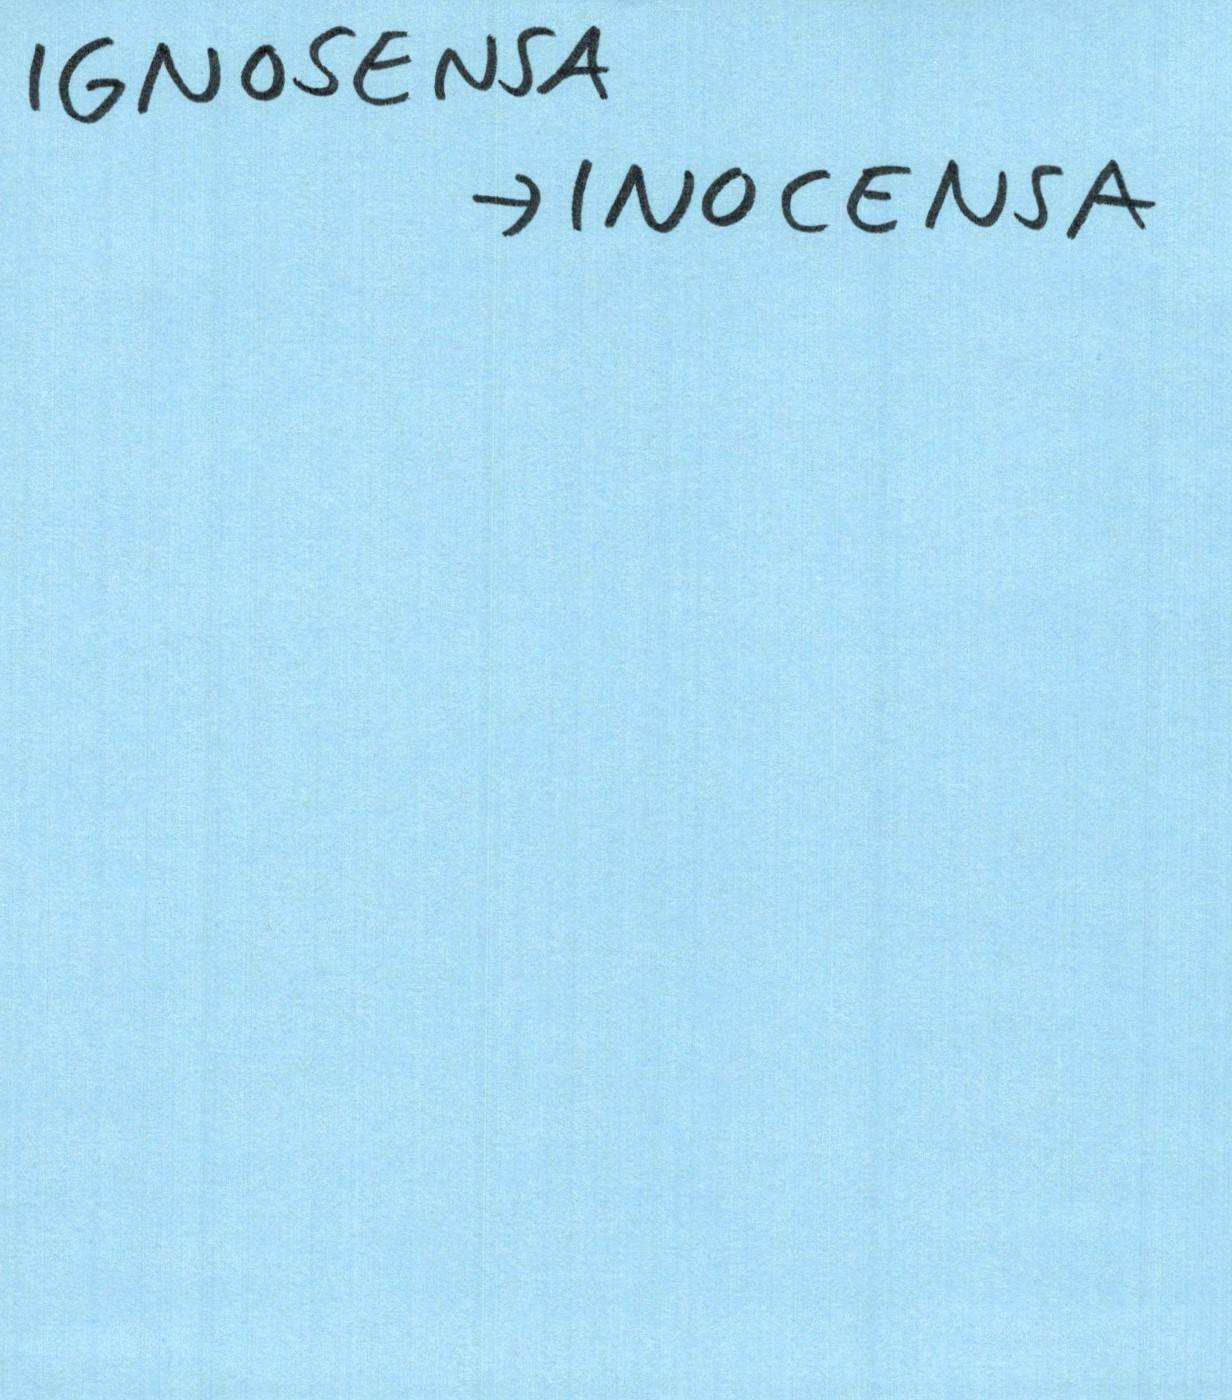 IGNOSENSA
→INOCENSA